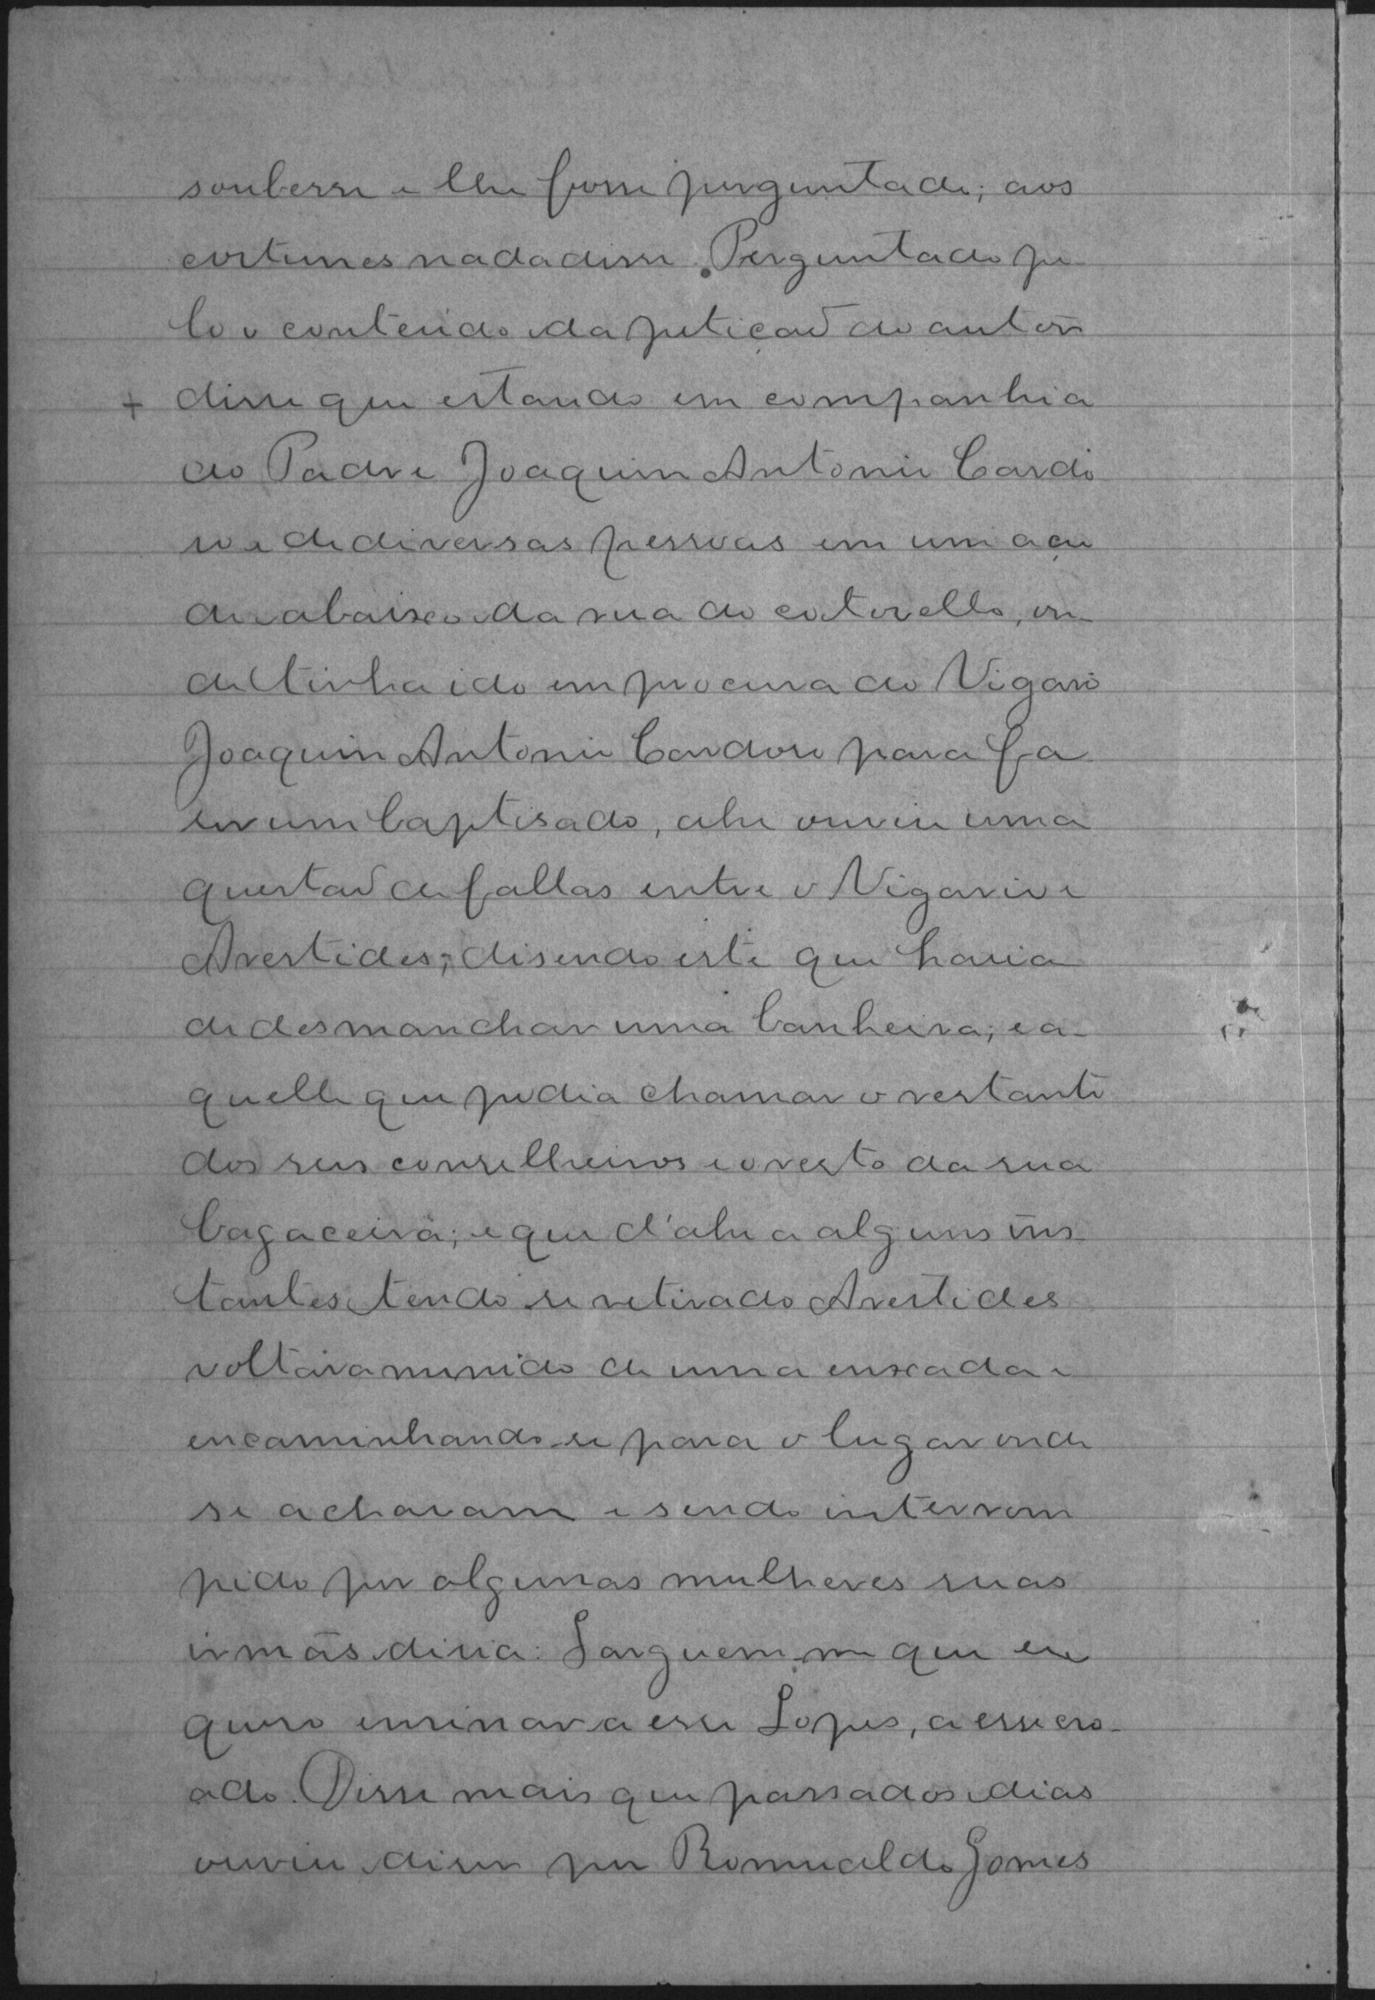 soubesse e lhe fosse perguntado; aos
costumes nada disse. Perguntado pe
lo o conteúdo da petiçaõ do autor
+ disse que estando em companhia
do Padre Joaquim Antonio Cardo
so e de diversas pessoas em um açu
de abaixo da rua do cotovello, on
de tinha ido em procura do Vigario
Joaquim Antonio Cardoso para fa
zer um baptisado, ahi ouviu uma
questaõ de fallas entre o Vigario e
Arestides; disendo este que havia
de desmanchar uma banheira; e a-
quelle que podia chamar o restante
dos seus conselheiros e o resto da sua
bagaceira; e que d'ahi a alguns ins-
tantes tendo se retirado Arestides
voltava munido de uma enxada e
encaminhando-se para o lugar onde
se achavam e sendo interrom
pido por algumas mulheres suas
irmãs disia: Larguem-me que eu
quero ensinar a esse Lopes, a esse cro-
ado. Disse mais que passados dias
ouviu diser por Romualdo Gomes